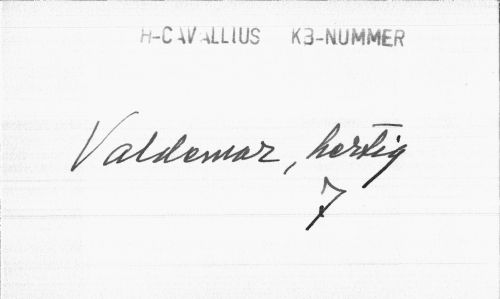 H-CAVALLIUS KB-NUMMER
Valdemar, hertig
7